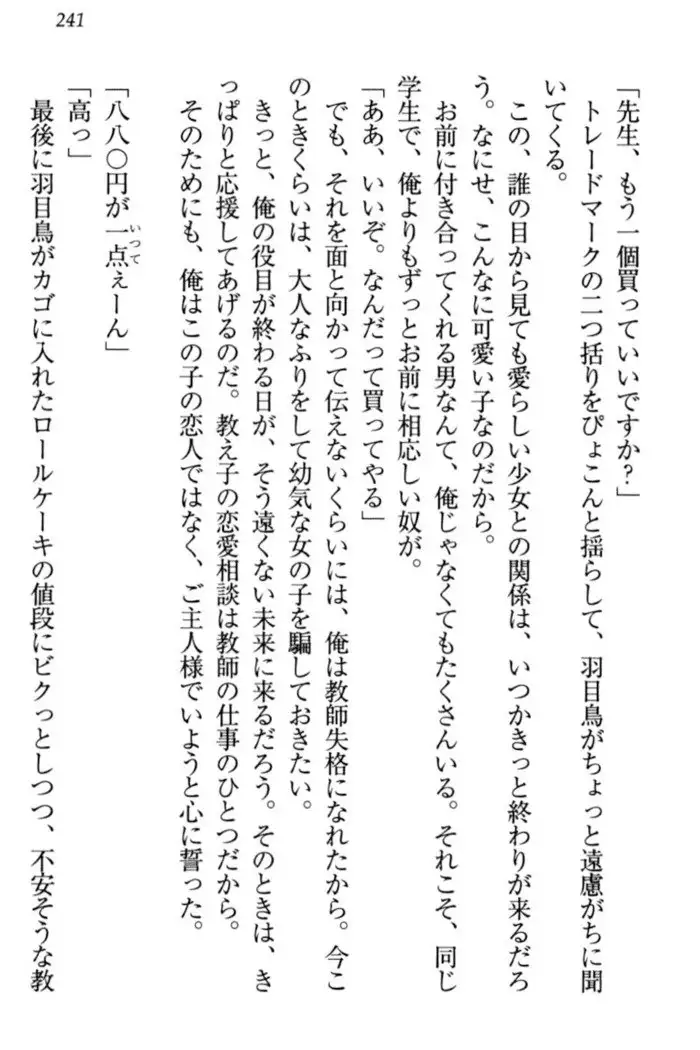 241
「先生、もう一個買っていいですか?」
トレードマークの二つ括りをぴょこんと揺らして、羽目鳥がちょっと遠慮がちに聞
いてくる。
この、誰の目から見ても愛らしい少女との関係は、いつかきっと終わりが来るだろ
う。なにせ、こんなに可愛い子なのだから。
お前に付き合ってくれる男なんて、俺じゃなくてもたくさんいる。それこそ、同じ
学生で、俺よりもずっとお前に相応しい奴が。
「ああ、いいぞ。なんだって買ってやる」
でも、それを面と向かって伝えないくらいには、俺は教師失格になれたから。今こ
のときくらいは、大人なふりをして幼気な女の子を騙しておきたい。
きっと、俺の役目が終わる日が、そう遠くない未来に来るだろう。そのときは、き
っぱりと応援してあげるのだ。教え子の恋愛相談は教師の仕事のひとつだから。
そのためにも、俺はこの子の恋人ではなく、ご主人様でいようと心に誓った。
「八八〇円が一点ぇーん」
いつて
「高っ」
最後に羽目鳥がカゴに入れたロールケーキの値段にビクっとしつつ、不安そうな教